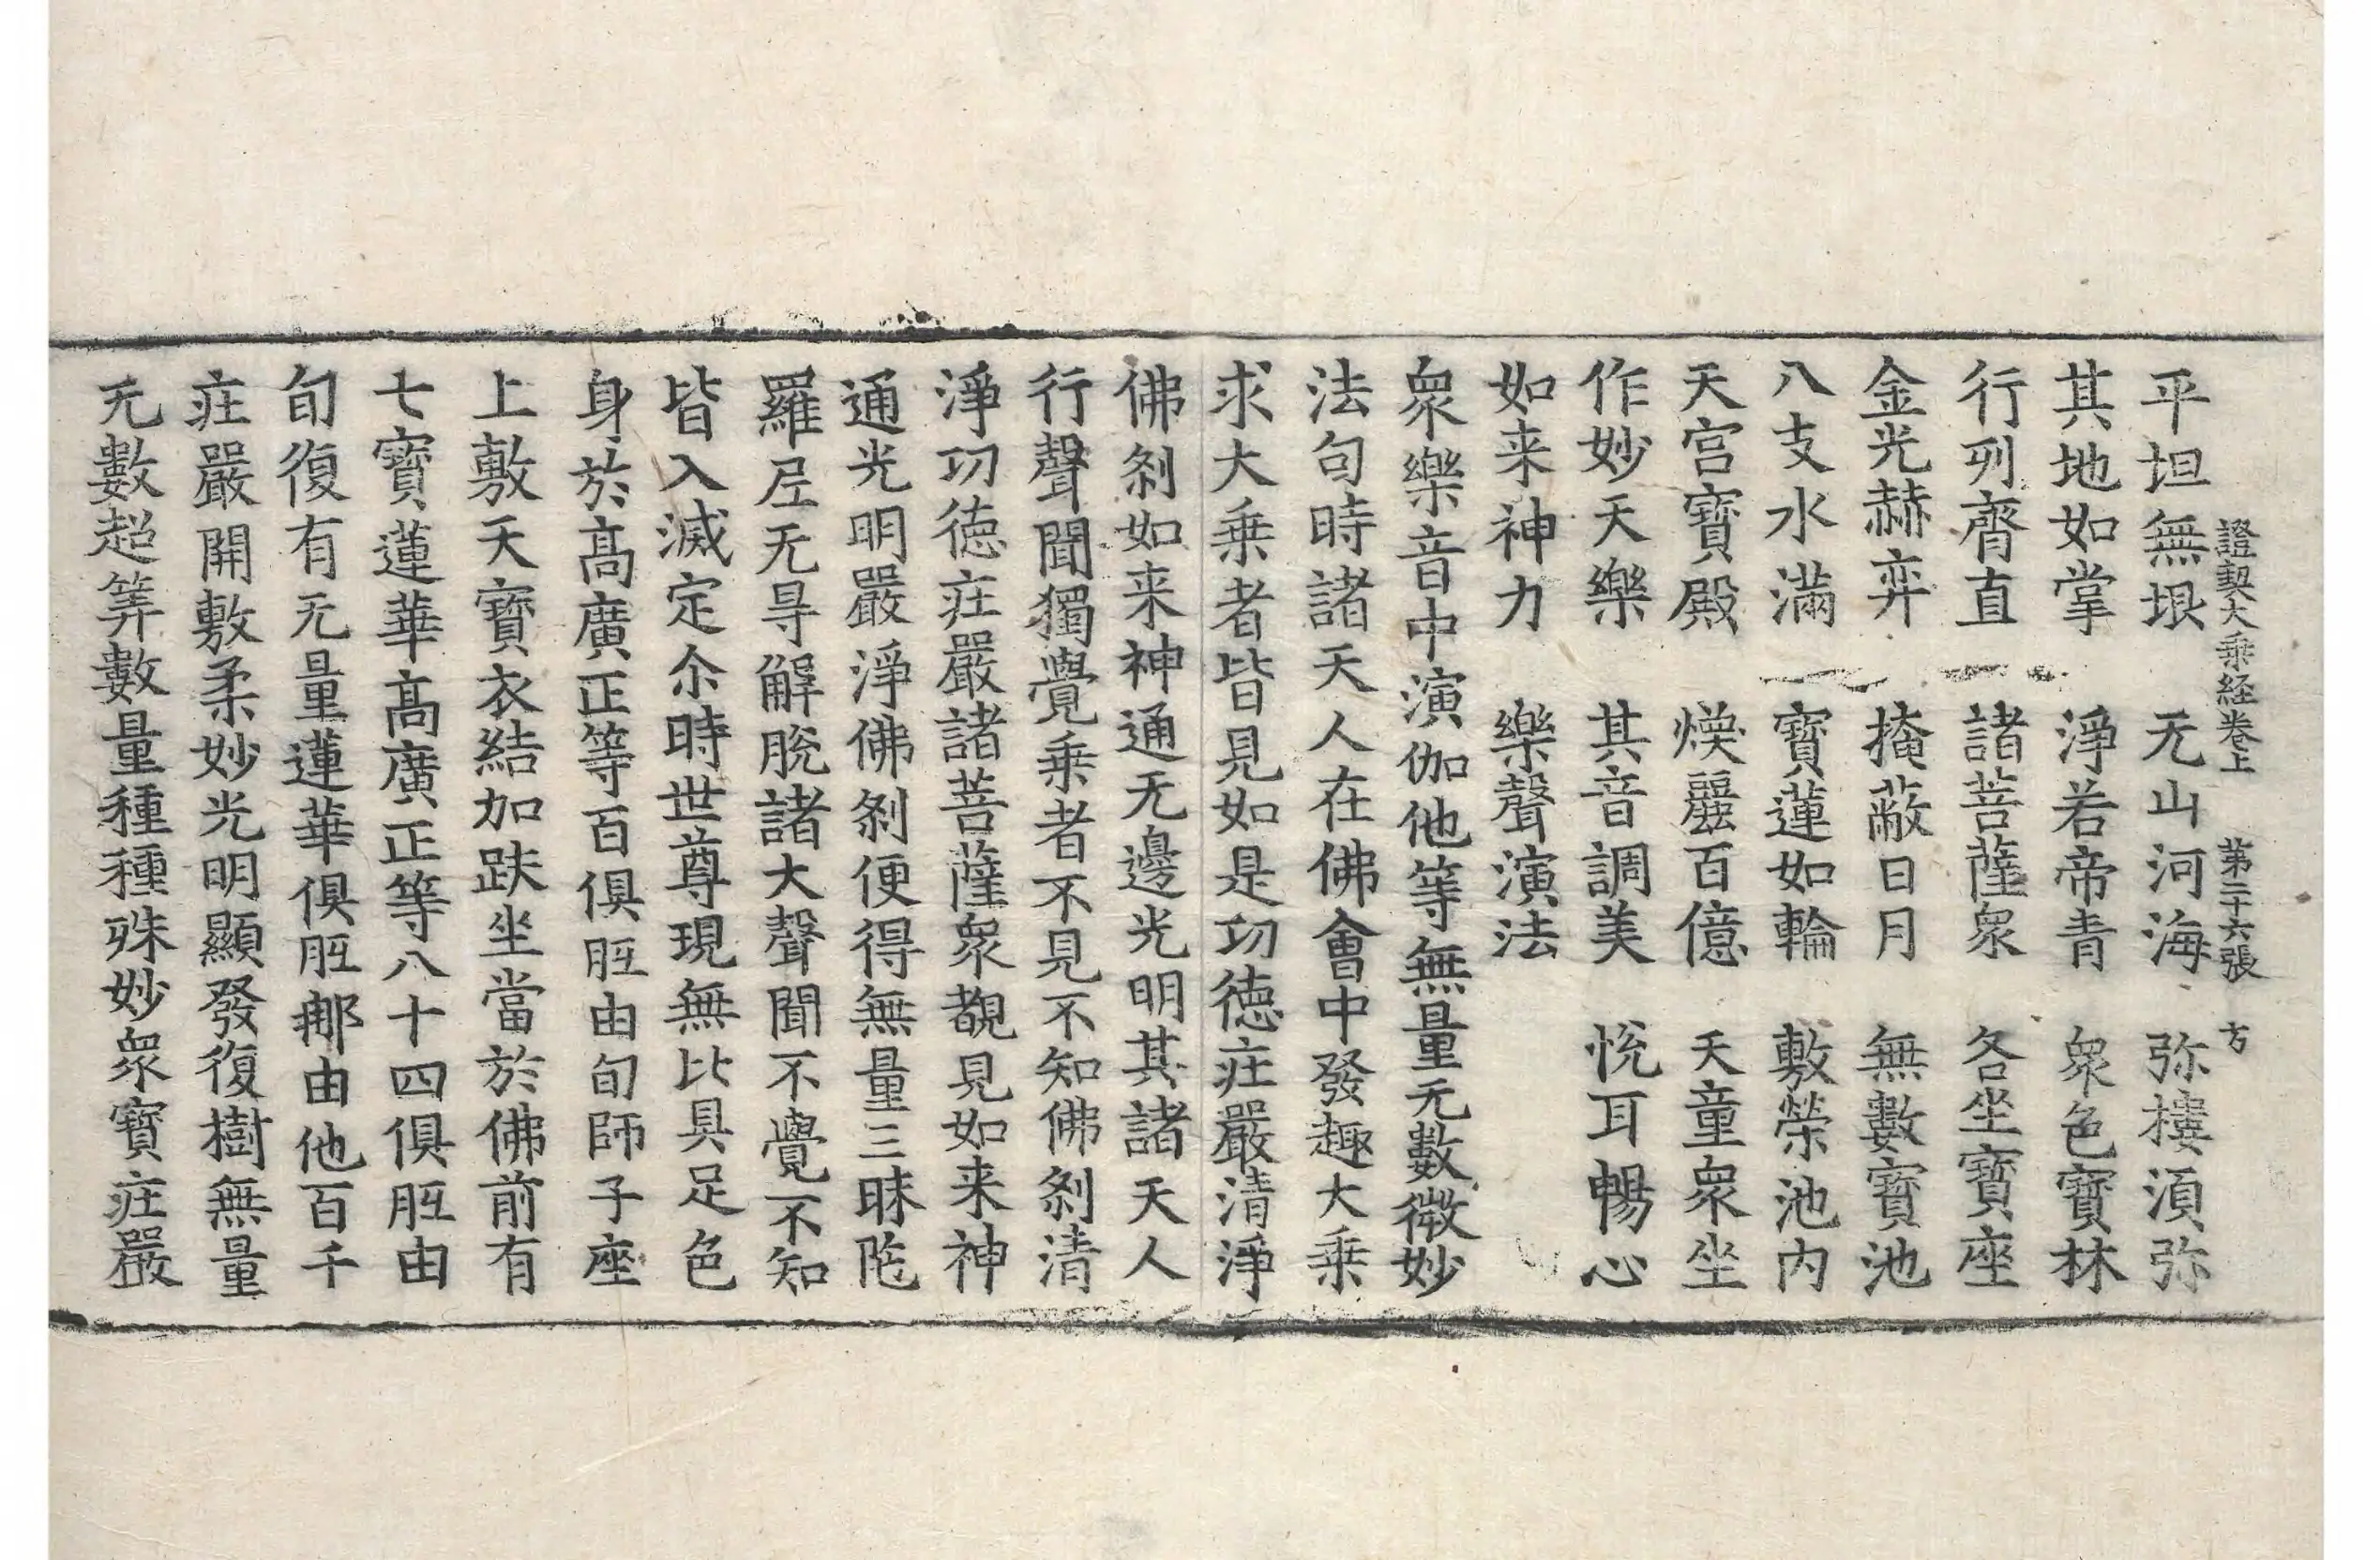 證契大乘経卷上 第二十六張 方
平坦無垠 无山河海 弥樓湏弥
其地如掌 淨若帝青 衆色寶林
行列齊直 諸菩薩衆 各坐寶座
金光赫弈 掩蔽日月 無數寶池
八支水滿 寶蓮如輪 敷榮池内
天宮寶殿 煥麗百億 天童衆坐
作妙天樂 其音調美 悅耳暢心
如来神力 樂聲演法
衆樂音中演伽他等無量无數微妙
法句時諸天人在佛會中發趣大乗
求大乗者皆見如是功德庄嚴清淨
佛刹如来神通无邊光明其諸天人
行聲聞獨覺乗者不見不知佛刹清
淨功德庄嚴諸菩薩衆覩見如来神
通光明嚴淨佛刹便得無量三昧陁
羅尼无㝵解脫諸大聲聞不覺不知
皆入滅定尒時世尊現無比具足色
身於髙廣正等百俱胝由旬師子座
上敷天寶衣結加趺坐當於佛前有
七寶蓮華髙廣正等八十四俱胝由
旬復有无量蓮華俱胝那由他百千
庄嚴開敷柔妙光明顯發復樹無量
无數超筭數量種種殊妙衆寶庄嚴